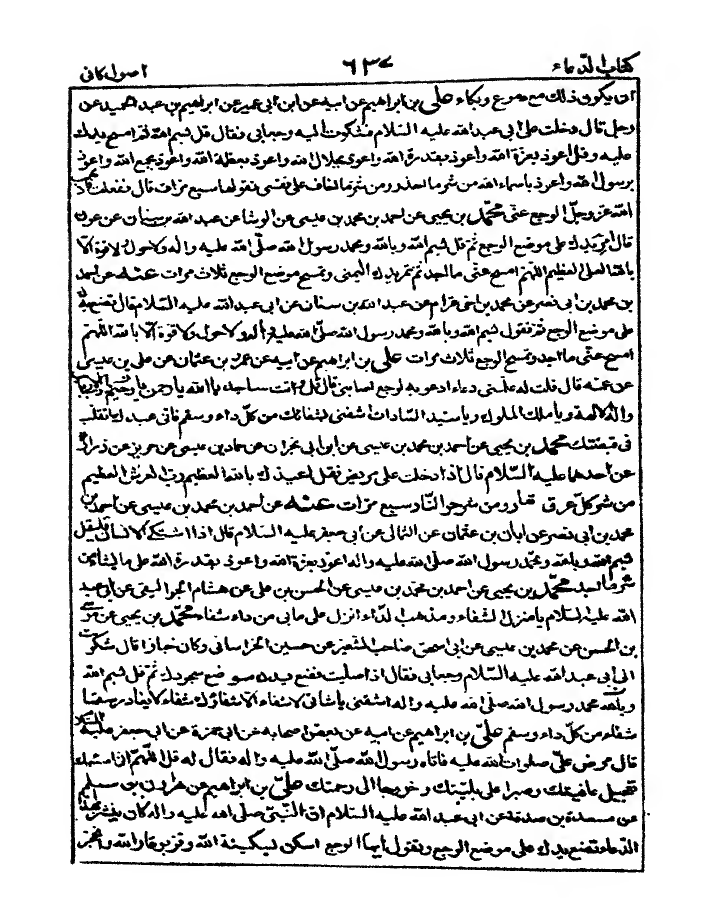 كتاب الدعاء ٦٣٧ اصول كافى
ان يكون ذلك مع دموع وبكاء على بن ابراهيم عن ابيه عن ابن ابى عمير عن ابراهيم بن عبد الحميد عن
رجل قال دخلت على ابى عبد الله عليه السلام فشكوت اليه وجعا بى فقال قل بسم الله ثم امسح يدك
عليه وقل اعوذ بعزة الله واعوذ بقدرة الله واعوذ بجلال الله واعوذ بعظمة الله واعوذ بجمع الله واعوذ
برسول الله واعوذ باسماء الله من شر ما احذر ومن شر ما اخاف على نفسى تقولها سبع مرات قال ففعلت فاذهب
الله عز وجل الوجع عنى محمد بن يحيى عن احمد بن محمد بن عيسى عن الوشا عن عبد الله بن سنان عن عون
قال امر يدك على موضع الوجع ثم قل بسم الله وبالله ومحمد رسول الله صلى الله عليه واله ولا حول ولا قوة الا
بالله العلى العظيم اللهم امسح عنى ما اجد ثم تمر يدك اليمنى وتمسح موضع الوجع ثلاث مرات عنه عن احمد
بن محمد بن ابى نصر عن محمد بن اخى غرام عن عبد الله بن سنان عن ابى عبد الله عليه السلام قال تضع يدك
على موضع الوجع ثم تقول بسم الله وبالله ومحمد رسول الله صلى الله عليه واله ولا حول ولا قوة الا بالله اللهم
امسح عنى ما اجد وتمسح الوجع ثلاث مرات على بن ابراهيم عن ابيه عن عمرو بن عثمان عن على بن عيسى
عن عمه قال قلت له علمنى دعاء ادعو به لوجع اصابنى قال قل وانت ساجد يا الله يا رحمن يا رحيم يا رب الارباب
واله الالهة ويا ملك الملوك ويا سيد السادات اشفنى بشفائك من كل داء وسقم فانى عبدك اتقلب
فى قبضتك محمد بن يحيى عن احمد بن محمد بن عيسى عن ابن ابى نجران عن حماد بن عيسى عن حريز عن زرارة
عن احدهما عليه السلام قال اذا دخلت على مريض فقل اعيذك بالله العظيم رب العرش العظيم
من شر كل عرق نفار ومن شر حر النار سبع مرات عنه عن احمد بن محمد بن عيسى عن احمد بن
محمد بن ابى نصر عن ابان بن عثمان عن الثمالى عن ابى جعفر عليه السلام قال اذا اشتكى الانسان فليقل
بسم الله وبالله ومحمد رسول الله صلى الله عليه واله اعوذ بعزة الله واعوذ بقدرة الله على ما يشاء من
شر ما اجد محمد بن يحيى عن احمد بن محمد بن عيسى عن الحسن بن على عن هشام الجواليقى عن ابى عبد
الله عليه السلام يا منزل الشفاء ومذهب الداء انزل على ما بى من داء شفاء محمد بن يحيى عن موسى
بن الحسن عن محمد بن عيسى عن ابى اسحق صاحب الشعير عن حسين الخراسانى وكان خبازا قال شكوت
الى ابى عبد الله عليه السلام وجعا بى فقال اذا صليت فضع يدك موضع سجودك ثم قل بسم الله
وبالله محمد رسول الله صلى الله عليه واله اشفنى يا شافى لا شفاء الا شفاؤك شفاء لا يغادر سقما
شفاء من كل داء وسقم على بن ابراهيم عن ابيه عن بعض اصحابه عن ابى حمزة عن ابى جعفر عليه السلام
قال مرض على صلوات الله عليه فاتاه رسول الله صلى الله عليه واله فقال له قل اللهم انى اسئلك
تعجيل عافيتك وصبرا على بليتك وخروجا الى رحمتك على بن ابراهيم عن هارون بن مسلم
عن مسعدة بن صدقة عن ابى عبد الله عليه السلام ان النبى صلى الله عليه واله كان ينشر بهذا
الدعاء تضع يدك على موضع الوجع وتقول ايها الوجع اسكن بسكينة الله وقر بوقار الله وانحجز